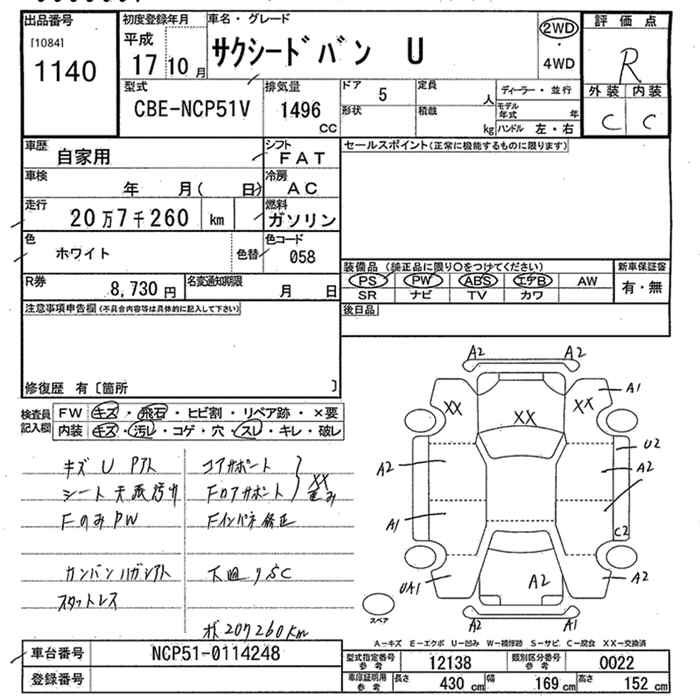 出品番号 初度登録年月 車名・グレード 2WD 評価点
[1084] 平成 サクシードバン U ・ R
1140 17 10月 4WD
型式 排気量 ドア 5 定員 人 ディーラー・並行 外装 内装
CBE-NCP51V 1496 cc 形状 積載 kg モデル年式 年 C C
ハンドル 左・右
車歴 自家用 シフト FAT セールスポイント(正常に機能するものに限ります)
車検 年 月( 日) 冷房 AC
走行 20万7千260 km 燃料 ガソリン
色 ホワイト 色替 色コード 058
装備品 (純正品に限り○をつけてください) 新車保証書
R券 8,730円 名変通知期限 月 日 PS PW ABS エアB AW 有・無
SR ナビ TV カワ
注意事項申告欄(不具合内容等は具体的に記入して下さい) 後日品
修復歴 有 〔箇所 〕
検査員記入欄 FW キズ・飛石・ヒビ割・リペア跡・×要
内装 キズ・汚レ・コゲ・穴・スレ・キレ・破レ
A2 A2
XX XX XX A1
A2 U2
A2
A1 C2
UA1 A2 A2
A2 A1
スペア
キズ U コアサポート XX
シート天張汚れ Fロアサポート
FのみPW Fインパネ修正
下廻りSC
スタットレス
207260km
A-キズ E-エクボ U-凹み W-補修跡 S-サビ C-腐食 XX-交換済
車台番号 NCP51-0114248 型式指定番号 参考 12138 類別区分番号 参考 0022
登録番号 車庫証明用 参考 長さ 430 cm 幅 169 cm 高さ 152 cm